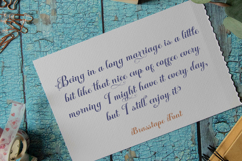 Being in a long marriage is a little
bit like that nice cup of coffee every
morning I might have it every day,
but I still enjoy it?
Brasstape Font